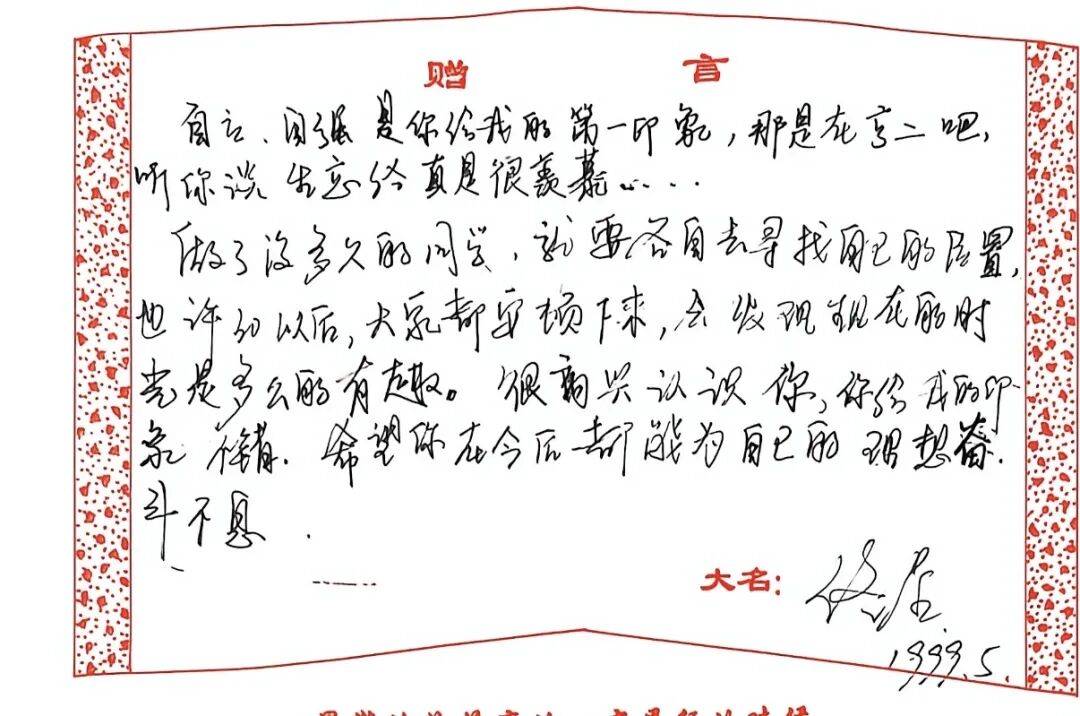 赠言
自立、自强是你给我的第一印象，那是在高二吧，
听你谈生意经真是很羡慕……
做了没多久的同学，就要各自去寻找自己的位置，
也许多以后，大家都安顿下来，会发现现在的时
光是多么的有趣。很高兴认识你，你给我的印
象不错．希望你在今后都能为自己的理想奋
斗不息．
……
大名：
1999.5.